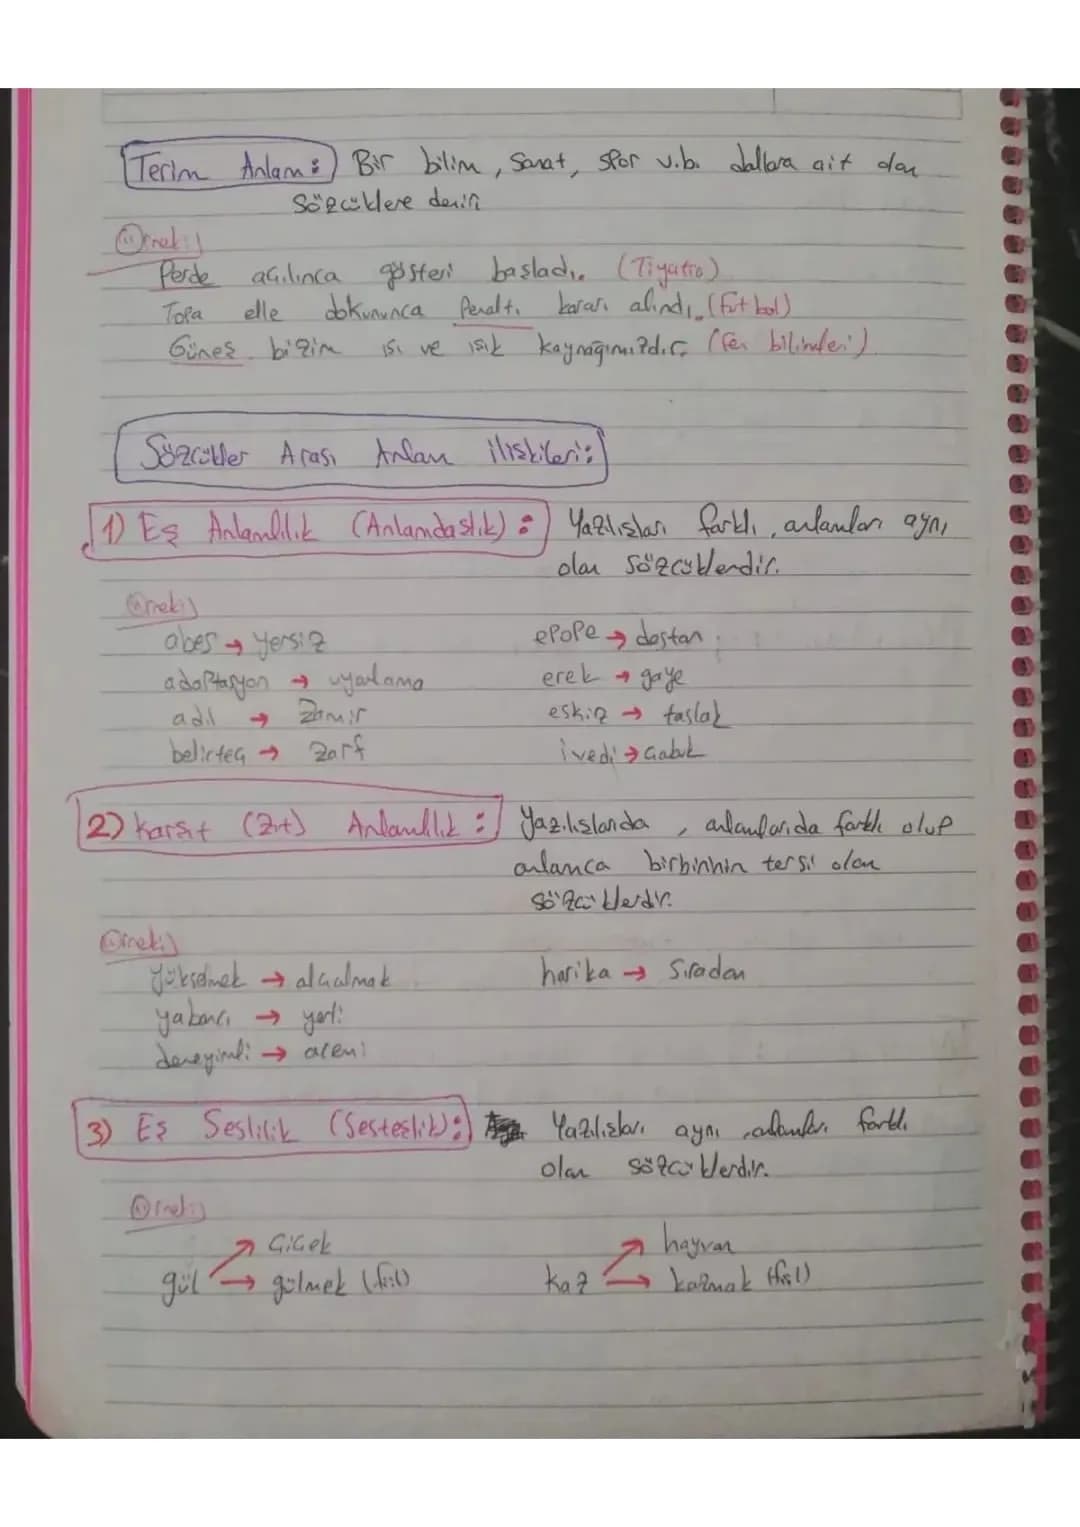 Terim Anlam: Bir bilim, Sanat, spor v.b. dallara ait olan
Sözcüklere denir.
Örnek:
Perde açılınca gösteri başladı. (Tiyatro)
Topa elle dokununca Penaltı kararı alındı. (futbol)
Güneş bizim ısı ve ışık kaynağımızdır. (fen bilimleri)
Sözcükler Arası Anlam ilişkileri:
1) Eş Anlamlılık (Anlamdaşlık): Yazılışları farklı, anlamları aynı
olan sözcüklerdir.
Örnek:
abes → yersiz epope → destan
adaptasyon → uyarlama erek → gaye
adıl → zamir eskiz → taslak
belirteç → zarf ivedi → Çabuk
2) Karşıt (Zıt) Anlamlılık: Yazılışlarıda, anlamlarıda farklı olup
anlamca birbirinin tersi olan
sözcüklerdir.
Örnek:
yükselmek → alçalmak harika → Sıradan
yabancı → yerli
deneyimli → acemi
3) Eş Seslilik (Sesteşlik): Yazılışları aynı, anlamları farklı
olan sözcüklerdir.
Örnek:
→ Çiçek → hayvan
gül → gülmek (fiil) kaz → kazmak (fiil)